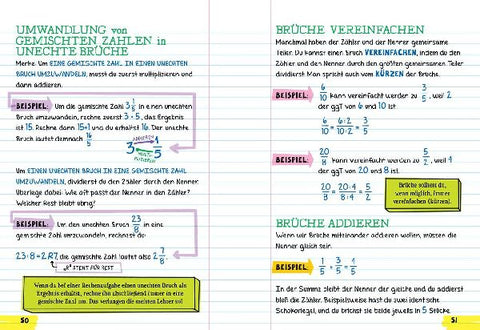 UMWANDLUNG von
GEMISCHTEN ZAHLEN in
UNECHTE BRÜCHE
Merke: Um EINE GEMISCHTE ZAHL IN EINEN UNECHTEN
BRUCH UMZUWANDELN, musst du zuerst multiplizieren und
dann addieren.
BEISPIEL: Um die gemischte Zahl 3 1/5 in einen unechten
Bruch umzuwandeln, rechnest du zuerst 3 · 5, das Ergebnis
ist 15. Rechne dann 15+1 und du erhältst 16. Der unechte
Bruch lautet demnach 16/5
3 1/5
Um EINEN UNECHTEN BRUCH IN EINE GEMISCHTE ZAHL
UMZUWANDELN, dividierst du den Zähler durch den Nenner.
Überlege dabei: Wie oft passt der Nenner in den Zähler?
Welcher Rest bleibt übrig?
BEISPIEL: Um den unechten Bruch 23/8 in eine
gemischte Zahl umzuwandeln, rechnest du:
23:8 = 2 R7, die gemischte Zahl lautet also 2 7/8.
„R“ STEHT FÜR REST
Wenn du bei einer Rechenaufgabe einen unechten Bruch als
Ergebnis erhältst, rechne ihn abschließend immer in eine
gemischte Zahl um. Das verlangen die meisten Lehrer so!
50
BRÜCHE VEREINFACHEN
Manchmal haben der Zähler und der Nenner gemeinsame
Teiler. Du kannst einen Bruch VEREINFACHEN, indem du den
Zähler und den Nenner durch den größten gemeinsamen Teiler
dividierst. Man spricht auch vom KÜRZEN der Brüche.
BEISPIEL: 6/10 kann vereinfacht werden zu 3/5, weil 2
der ggT von 6 und 10 ist.
6/10 = 6:2/10:2 = 3/5
BEISPIEL: 20/8 kann vereinfacht werden zu 5/2, weil 4
der ggT von 20 und 8 ist.
20/8 = 20:4/8:4 = 5/2
Brüche solltest du,
wenn möglich, immer
vereinfachen (kürzen).
BRÜCHE ADDIEREN
Wenn wir Brüche miteinander addieren wollen, müssen die
Nenner gleich sein.
BEISPIEL: 1/5 + 3/5 = 4/5
In der Summe bleibt der Nenner der gleiche und du addierst
bloß die Zähler. Beispielsweise hast du zwei identische
Schokoriegel, und du brichst sie beide jeweils in 5 Stücke
51